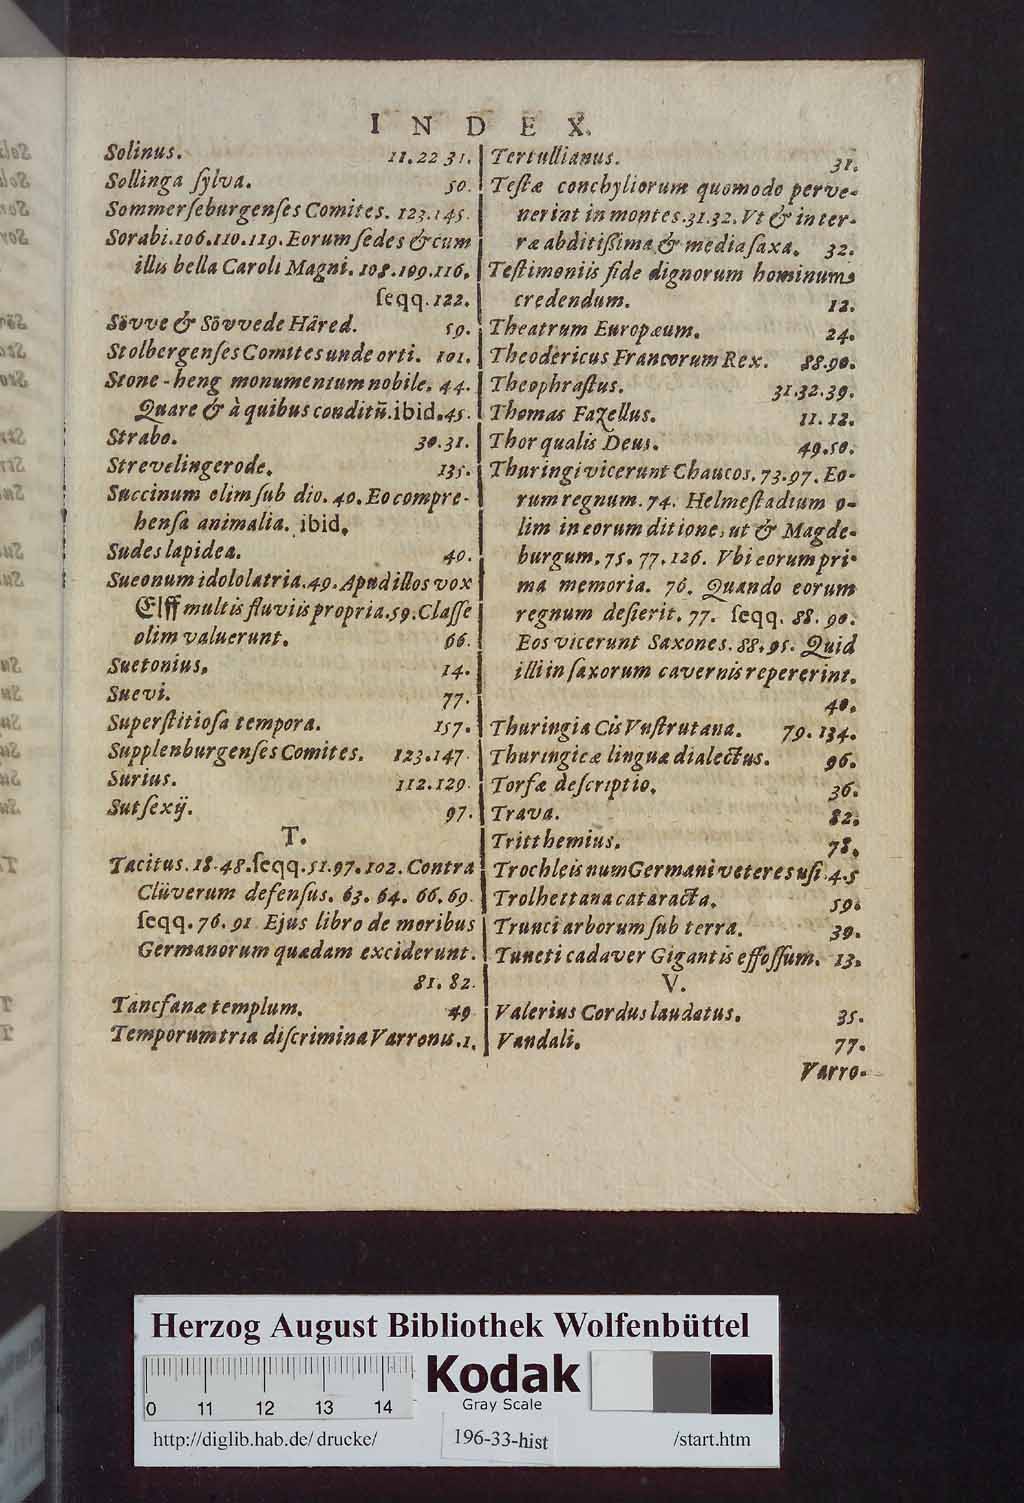 INDEX.
Solinus. 11.22 31.
Sollinga ſylva. 50.
Sommerſeburgenſes Comites. 123.145.
Sorabi.106.110.119.Eorum ſedes & cum
illis bella Caroli Magni. 108.109.116.
ſeqq.122.
Sövve & Sövvede Håred. 59.
Stolbergenſes Comites unde orti. 101.
Stone-heng monumentum nobile. 44.
Quare & à quibus conditũ.ibid.45.
Strabo. 30.31.
Strevelingerode. 135.
Succinum olim ſub dio. 40. Eo compre-
henſa animalia. ibid.
Sudes lapidea. 40.
Sueonum idololatria.49. Apud illos vox
Elff multis fluviis propria.59.Claſſe
olim valuerunt. 66.
Suetonius. 14.
Suevi. 77.
Superſtitioſa tempora. 157.
Supplenburgenſes Comites. 123.147.
Surius. 112.129.
Sutſexij. 97.
T.
Tacitus.18.48.ſeqq.51.97.102. Contra
Clüverum defenſus. 63. 64. 66.69.
ſeqq. 76.91 Ejus libro de moribus
Germanorum quædam exciderunt.
81. 82.
Tancfanæ templum. 49
Temporum tria diſcrimina Varronis.1.
Tertullianus. 31.
Teſtæ conchyliorum quomodo perve-
nerint in montes.31.32. Vt & in ter-
ræ abditiſſima & media ſaxa. 32.
Teſtimoniis fide dignorum hominum
credendum. 12.
Theatrum Europæum. 24.
Theodericus Francorum Rex. 88.90.
Theophraſtus. 31.32.39.
Thomas Fazellus. 11.12.
Thor qualis Deus. 49.50.
Thuringi vicerunt Chaucos. 73.97. Eo-
rum regnum. 74. Helmeſtadium o-
lim in eorum ditione, ut & Magde-
burgum. 75. 77.126. Vbi eorum pri-
ma memoria. 76. Quando eorum
regnum deſierit. 77. ſeqq. 88. 90.
Eos vicerunt Saxones. 88.95. Quid
illi in ſaxorum cavernis repererint.
40.
Thuringia Cis Vnſtrutana. 79. 134.
Thuringicæ linguæ dialectus. 96.
Torfæ deſcriptio. 36.
Trava. 82.
Tritthemius. 78.
Trochleis num Germani veteres uſi.45
Trolhettana cataracta. 59.
Trunci arborum ſub terra. 39.
Tuneti cadaver Gigantis effoſſum. 13.
V.
Valerius Cordus laudatus. 35.
Vandali. 77.
Varro-
Herzog August Bibliothek Wolfenbüttel
Kodak
Gray Scale
0 11 12 13 14
http://diglib.hab.de/drucke/ 196-33-hist /start.htm